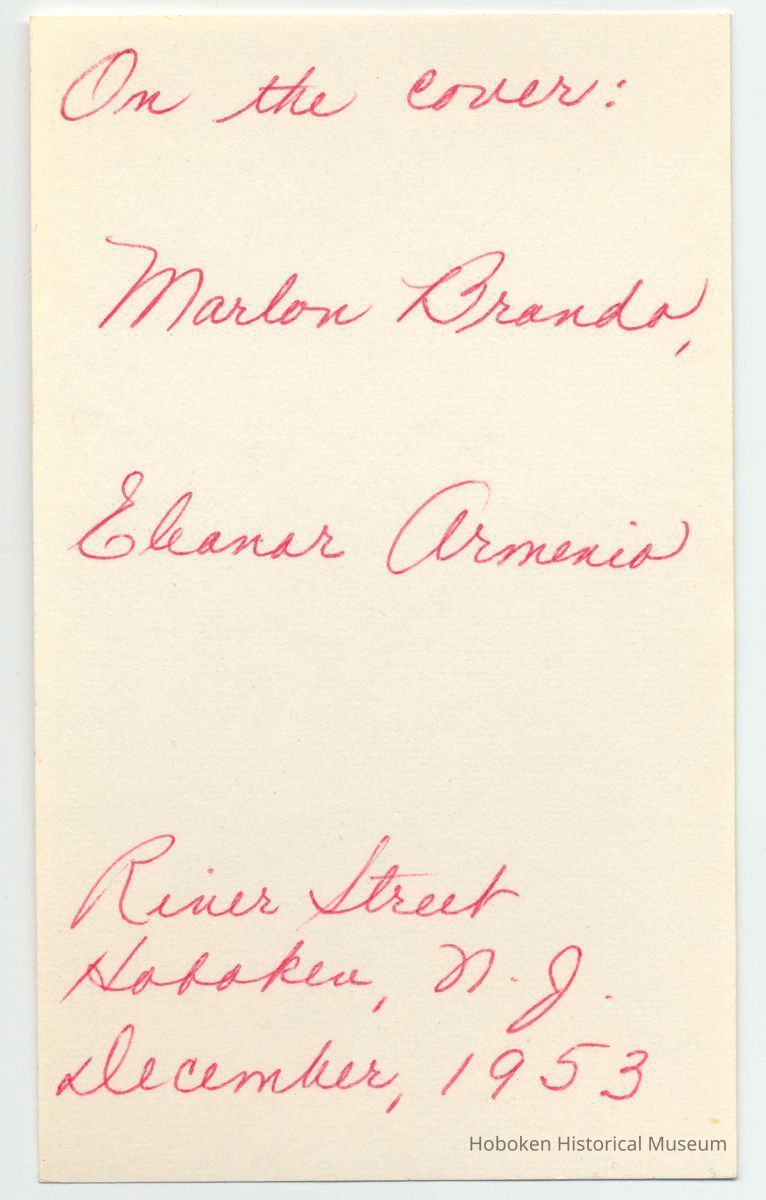 On the cover:
Marlon Brando,
Eleanor Armenio
River Street
Hoboken, N.J.
December, 1953
Hoboken Historical Museum